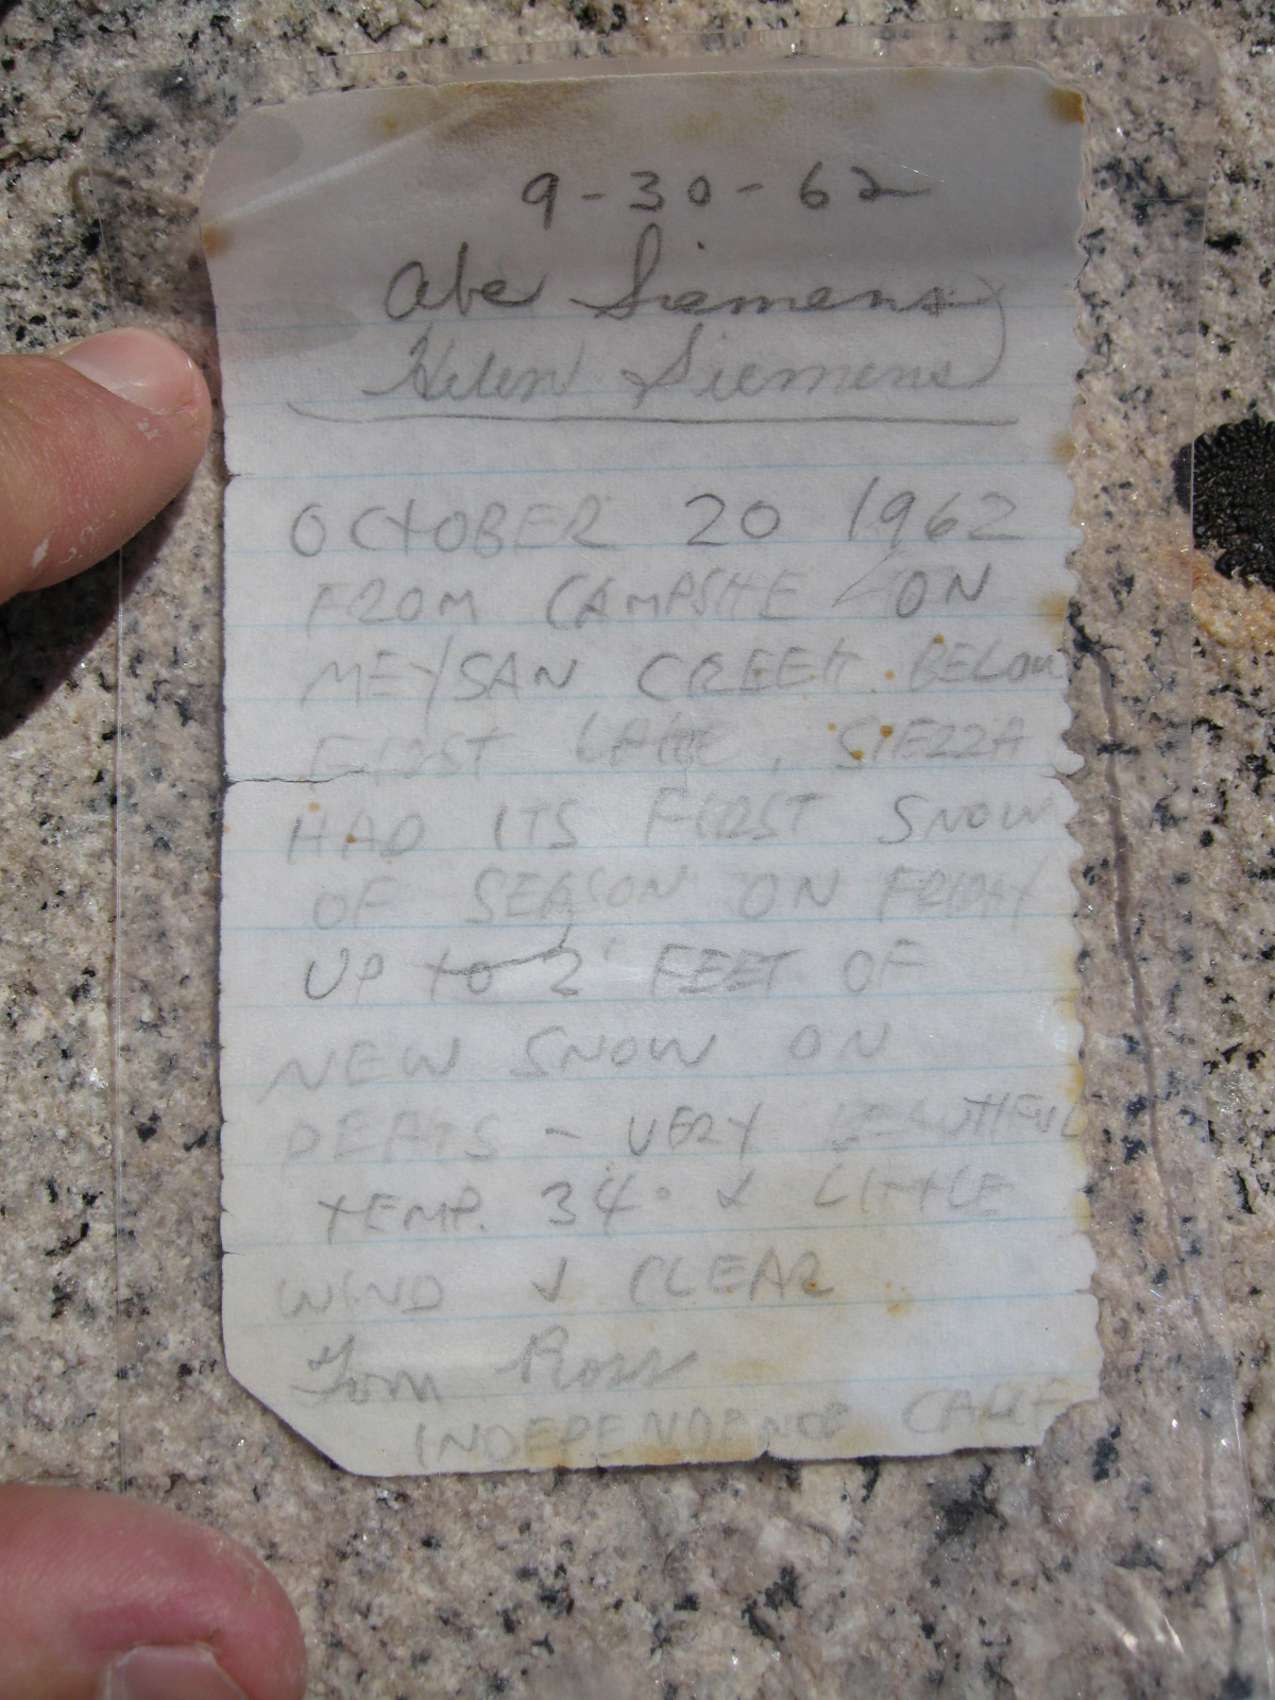 9-30-62
Abe Siemens
Helen Siemens
OCTOBER 20 1962
FROM CAMPSITE ON
MEYSAN CREEK BELOW
FIRST LAKE, SIERRA
HAD ITS FIRST SNOW
OF SEASON ON FRIDAY
UP to 2' FEET OF
NEW SNOW ON
PEAKS - VERY BEAUTIFUL
TEMP. 34° & LITTLE
WIND & CLEAR
Tom Ross
INDEPENDENCE CALIF